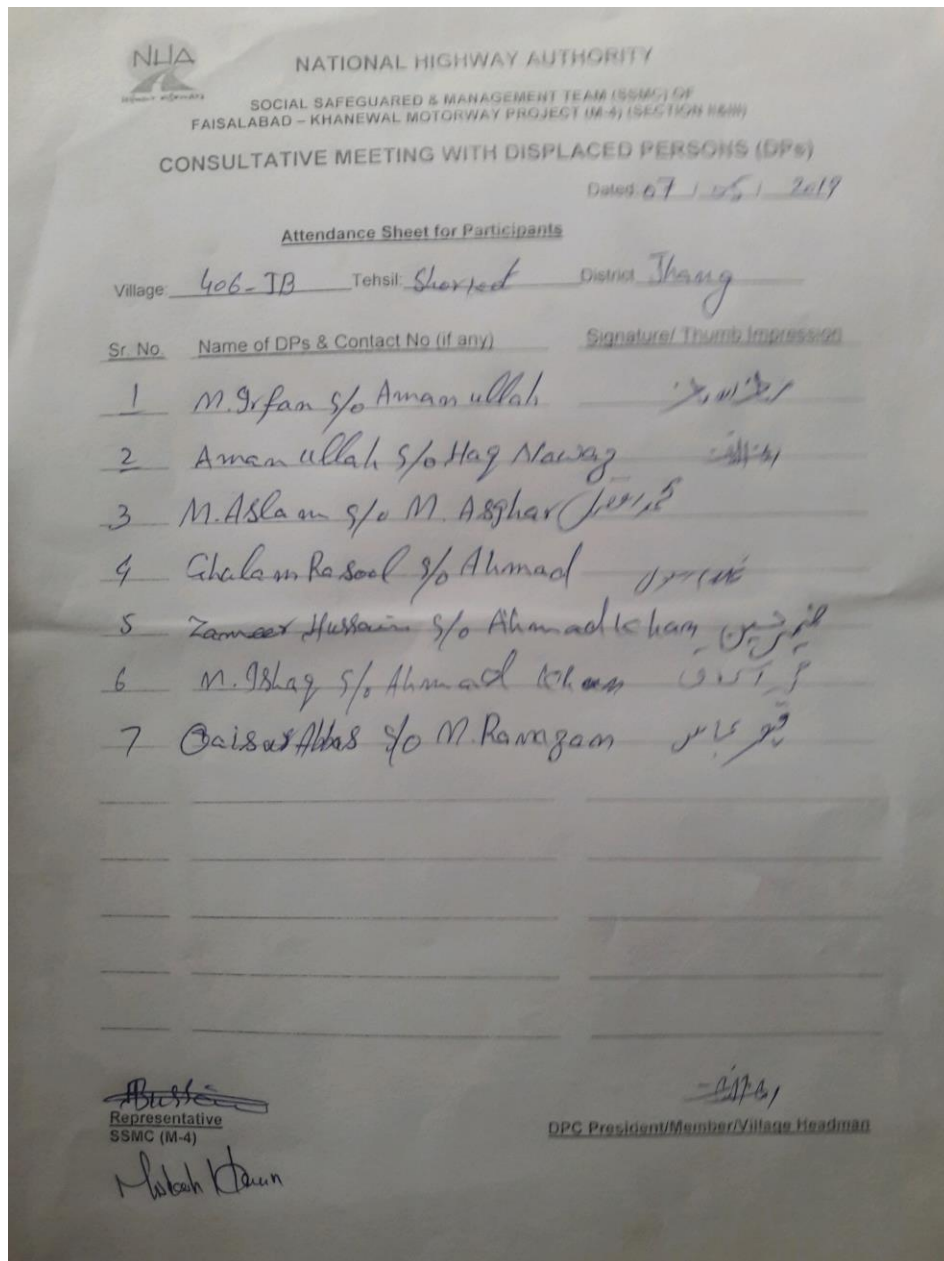 NHA
NATIONAL HIGHWAY AUTHORITY
SOCIAL SAFEGUARED & MANAGEMENT TEAM (SSMC) OF
FAISALABAD – KHANEWAL MOTORWAY PROJECT (M-4) (SECTION II&III)
CONSULTATIVE MEETING WITH DISPLACED PERSONS (DPs)
Dated: 07 / 05 / 2019
Attendance Sheet for Participants
Village: 406-JB Tehsil: Shorkot District Jhang
Sr. No. Name of DPs & Contact No (if any) Signature/ Thumb Impression
1 M. Irfan s/o Aman ullah
2 Aman ullah s/o Haq Nawaz
3 M. Aslam s/o M. Asghar
4 Ghulam Rasool s/o Ahmad غلام رسول
5 Zameer Hussain s/o Ahmad Khan ضمیر حسین
6 M. Ishaq s/o Ahmad Khan
7 Qaisar Abbas s/o M. Ramzan قیصر عباس
Representative
SSMC (M-4)
DPC President/Member/Village Headman